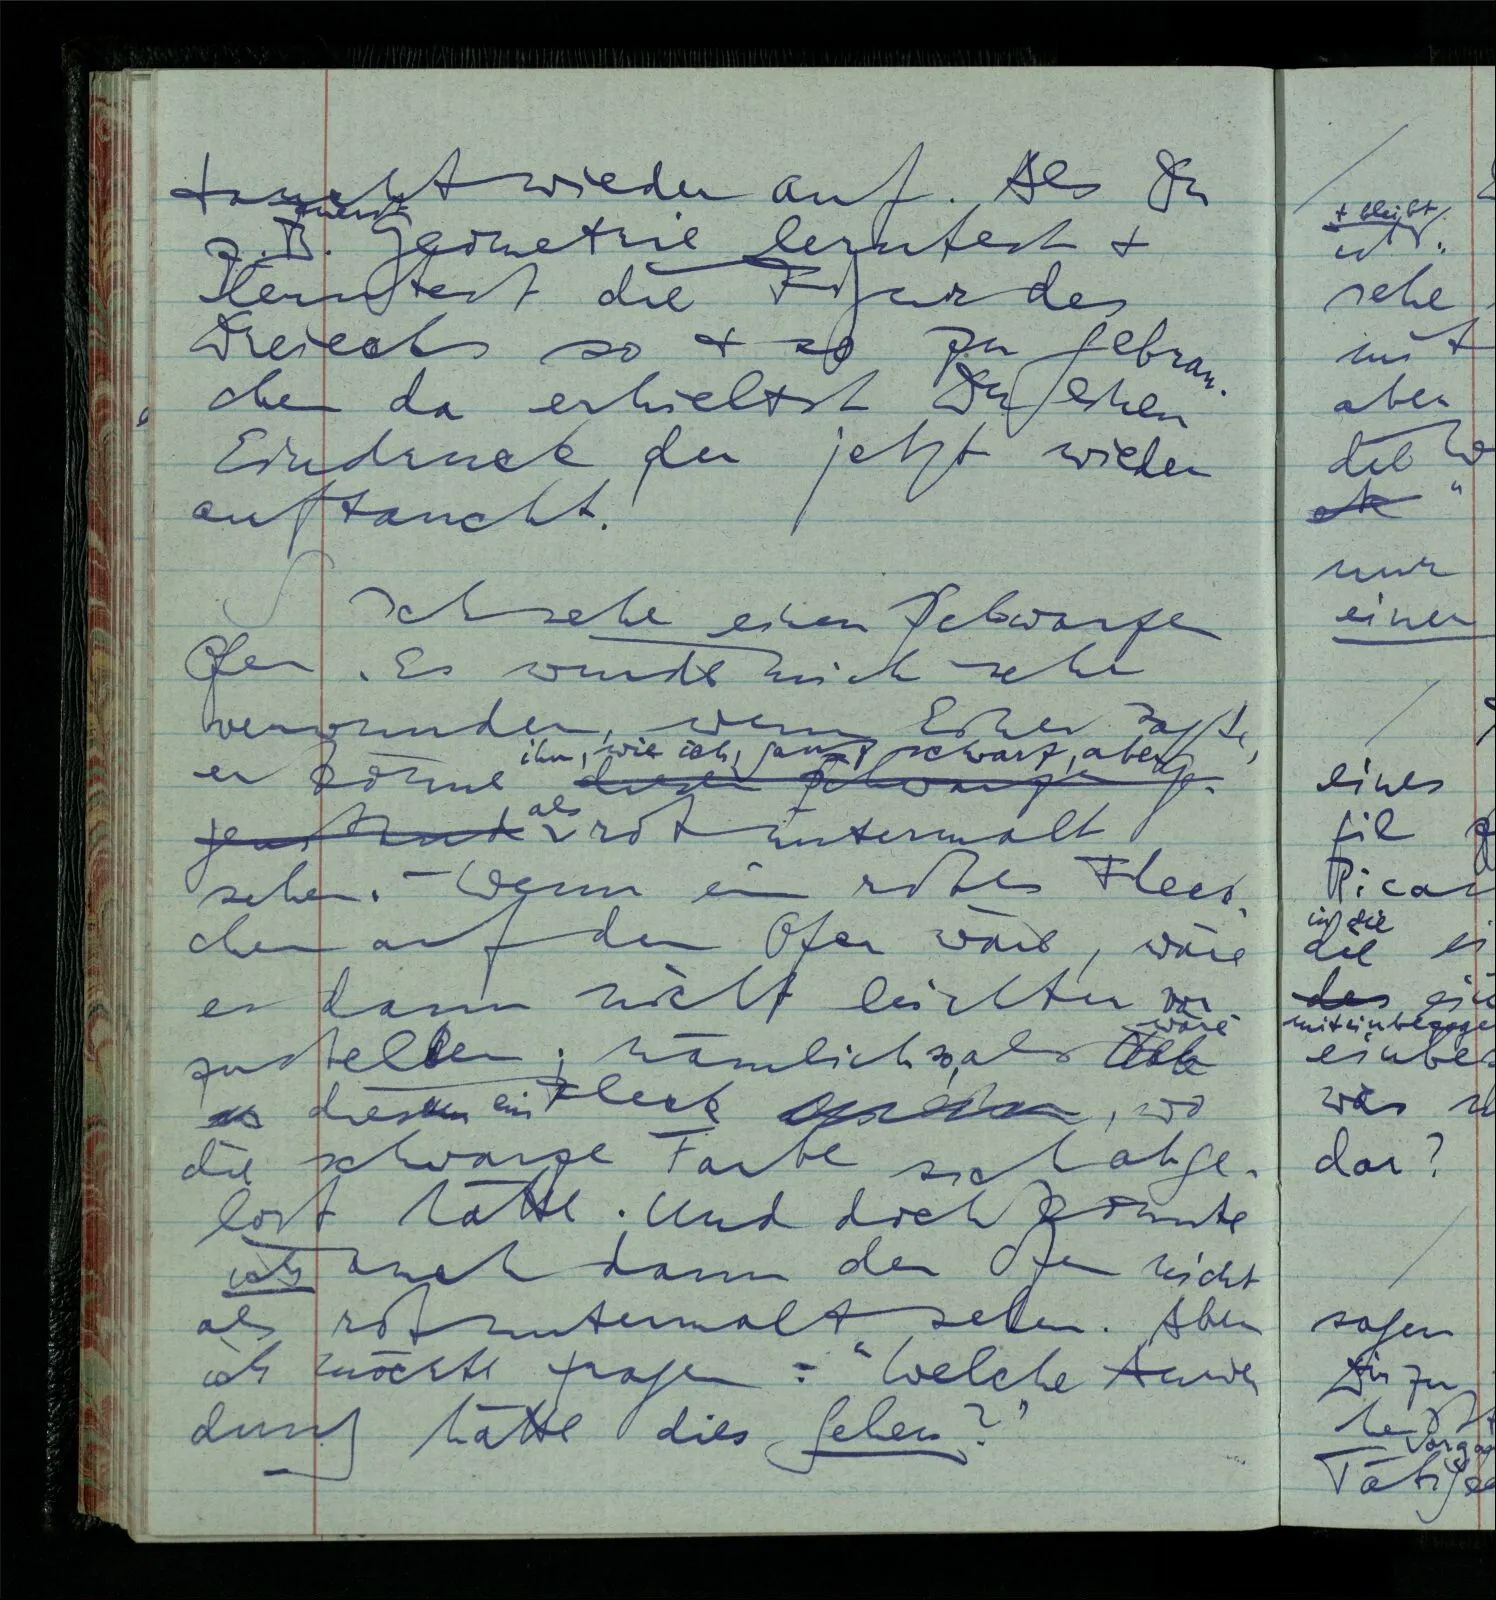 taucht wieder auf. Als Du
zuerst
z.B. Geometrie lerntest +
lerntest die Figur des
Dreiecks so + so zu gebrau-
chen da erhieltst Du einen
Eindruck der jetzt wieder
auftaucht.
Ich sehe einen schwarzen
Ofen. Es würde mich sehr
verwundern, wenn Einer sagte,
ihn, wie ich, ganz schwarz, aber
er könne diesen schwarzen Ge-
genstand als rot untermalt
sehen. – Wenn ein rotes Fleck-
chen auf dem Ofen wäre, wäre
es dann nicht leichter vor
wäre
zustellen; nämlich so, als
dies ein Fleck, wo
die schwarze Farbe sich abge-
löst hätte. Und doch könnte
ich auch dann den Ofen nicht
als rot untermalt sehen. Aber
ich möchte fragen: "Welche Anwen
dung hätte dies Sehen?"
+ bleibt
ist".
sehe
mit
aber
das W
"
nur
einen
eines
Picas
in die
die ei
des ein
miteinbezoge
einbez
was
dar?
sagen
Dir zu
Vorga
Tätigke